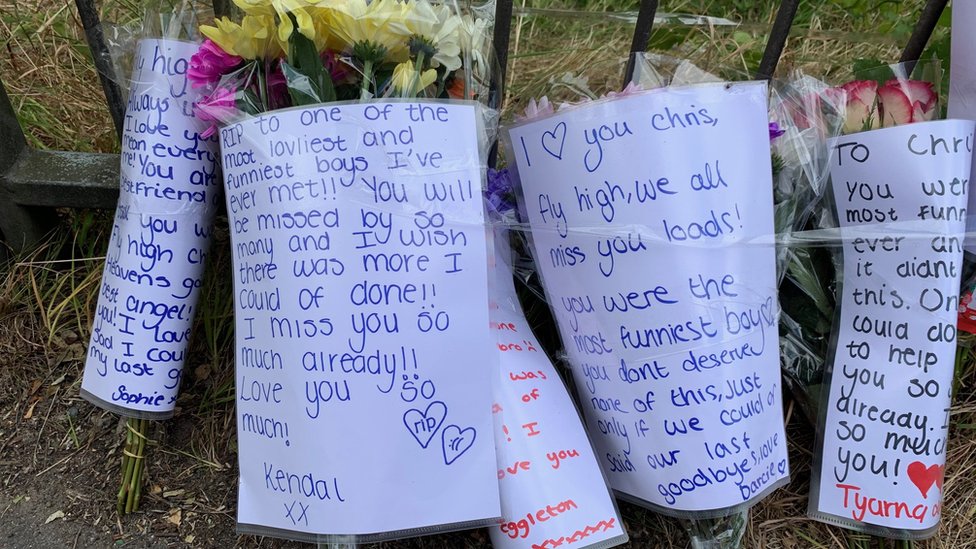 fly high
Always
I love you
mean every
me! You are
bestfriend
you w
Fly high Ch
Heavens g
best angel!
you! I love
Sad I coul
my last g
Sophie
RIP to one of the
most lovliest and
funniest boys I've
ever met!! You will
be missed by so
many and I wish
there was more I
could of done!!
I miss you so
much already!!
Love you so
much!
rip
Kendal
xx
was
of
! I
ove you
Eggleton
xxxxxx
I you Chris,
fly high, we all
miss you loads!
you were the
most funniest boy
you dont deserve
none of this, Just
only if we could of
said our last
goodbye's, love
Darcie
To Chri
You were
most funn
ever an
it didnt
this. On
could do
to help
you so
already. I
so much
you!
Tyarna